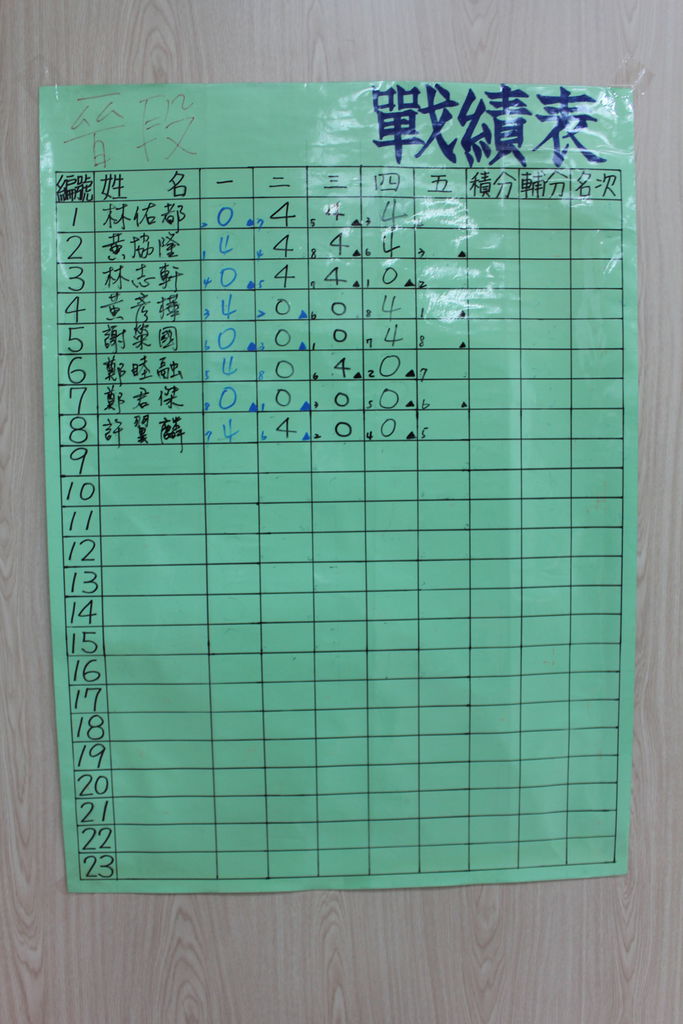 晉段 戰績表
編號 姓 名 一 二 三 四 五 積分 輔分 名次
1 林佑都 2 0 ▲ 7 4 5 4 ▲ 3 4
2 黃協隆 1 4 4 4 8 4 ▲ 6 4 3 ▲
3 林志軒 4 0 ▲ 5 4 7 4 ▲ 1 0 2
4 黃彥樺 3 4 2 0 ▲ 6 0 8 4 1 ▲
5 謝榮國 6 0 ▲ 3 0 ▲ 1 0 7 4 8 ▲
6 鄭睦融 5 4 8 0 4 ▲ 2 0 ▲ 7
7 鄭君傑 8 0 ▲ 1 0 ▲ 3 0 5 0 ▲ 6 ▲
8 許翼麟 7 4 6 4 ▲ 2 0 4 0 ▲ 5
9
10
11
12
13
14
15
16
17
18
19
20
21
22
23